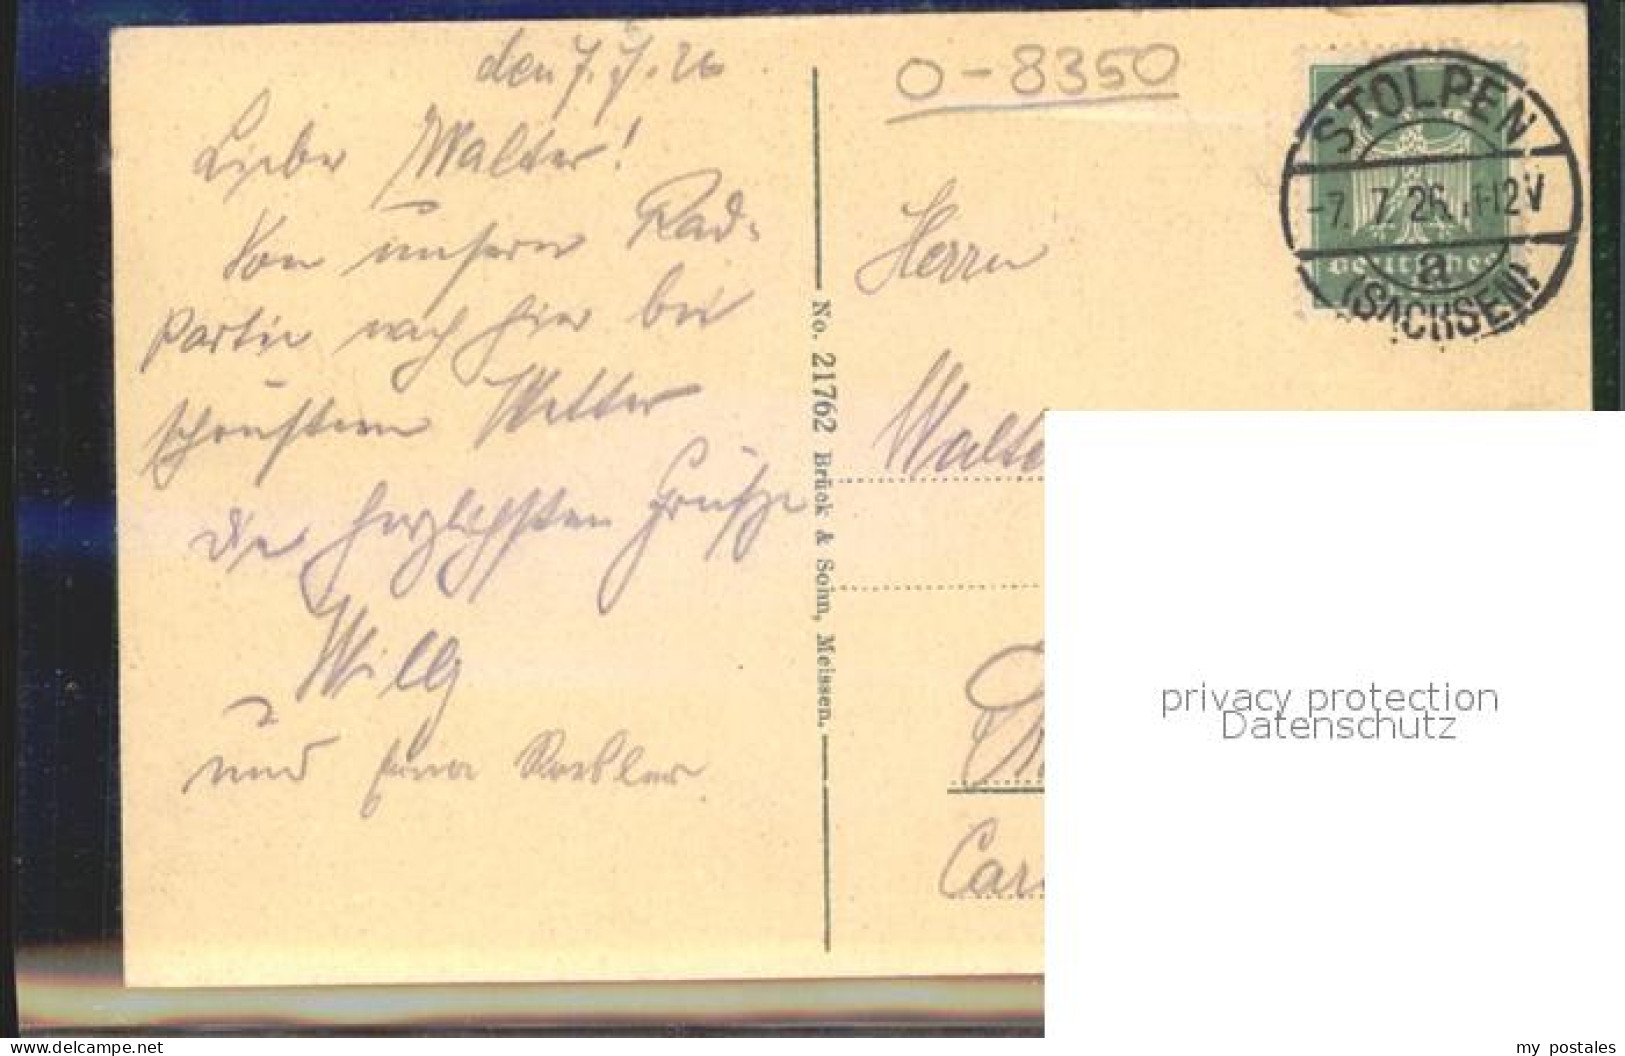 den 7. 7. 26
Lieber Walter!
Von unserer Rad-
partie nach hier bei
schönstem Wetter
die herzlichsten Grüße
Willy
und Roebler
O-8350
STOLPEN
-7. 7. 26. 11-12V
a
(SACHSEN)
Deutsches
Herrn
Walte
Car
No. 21762 Brück & Sohn, Meissen.
privacy protection
Datenschutz
www.delcampe.net
my_postales